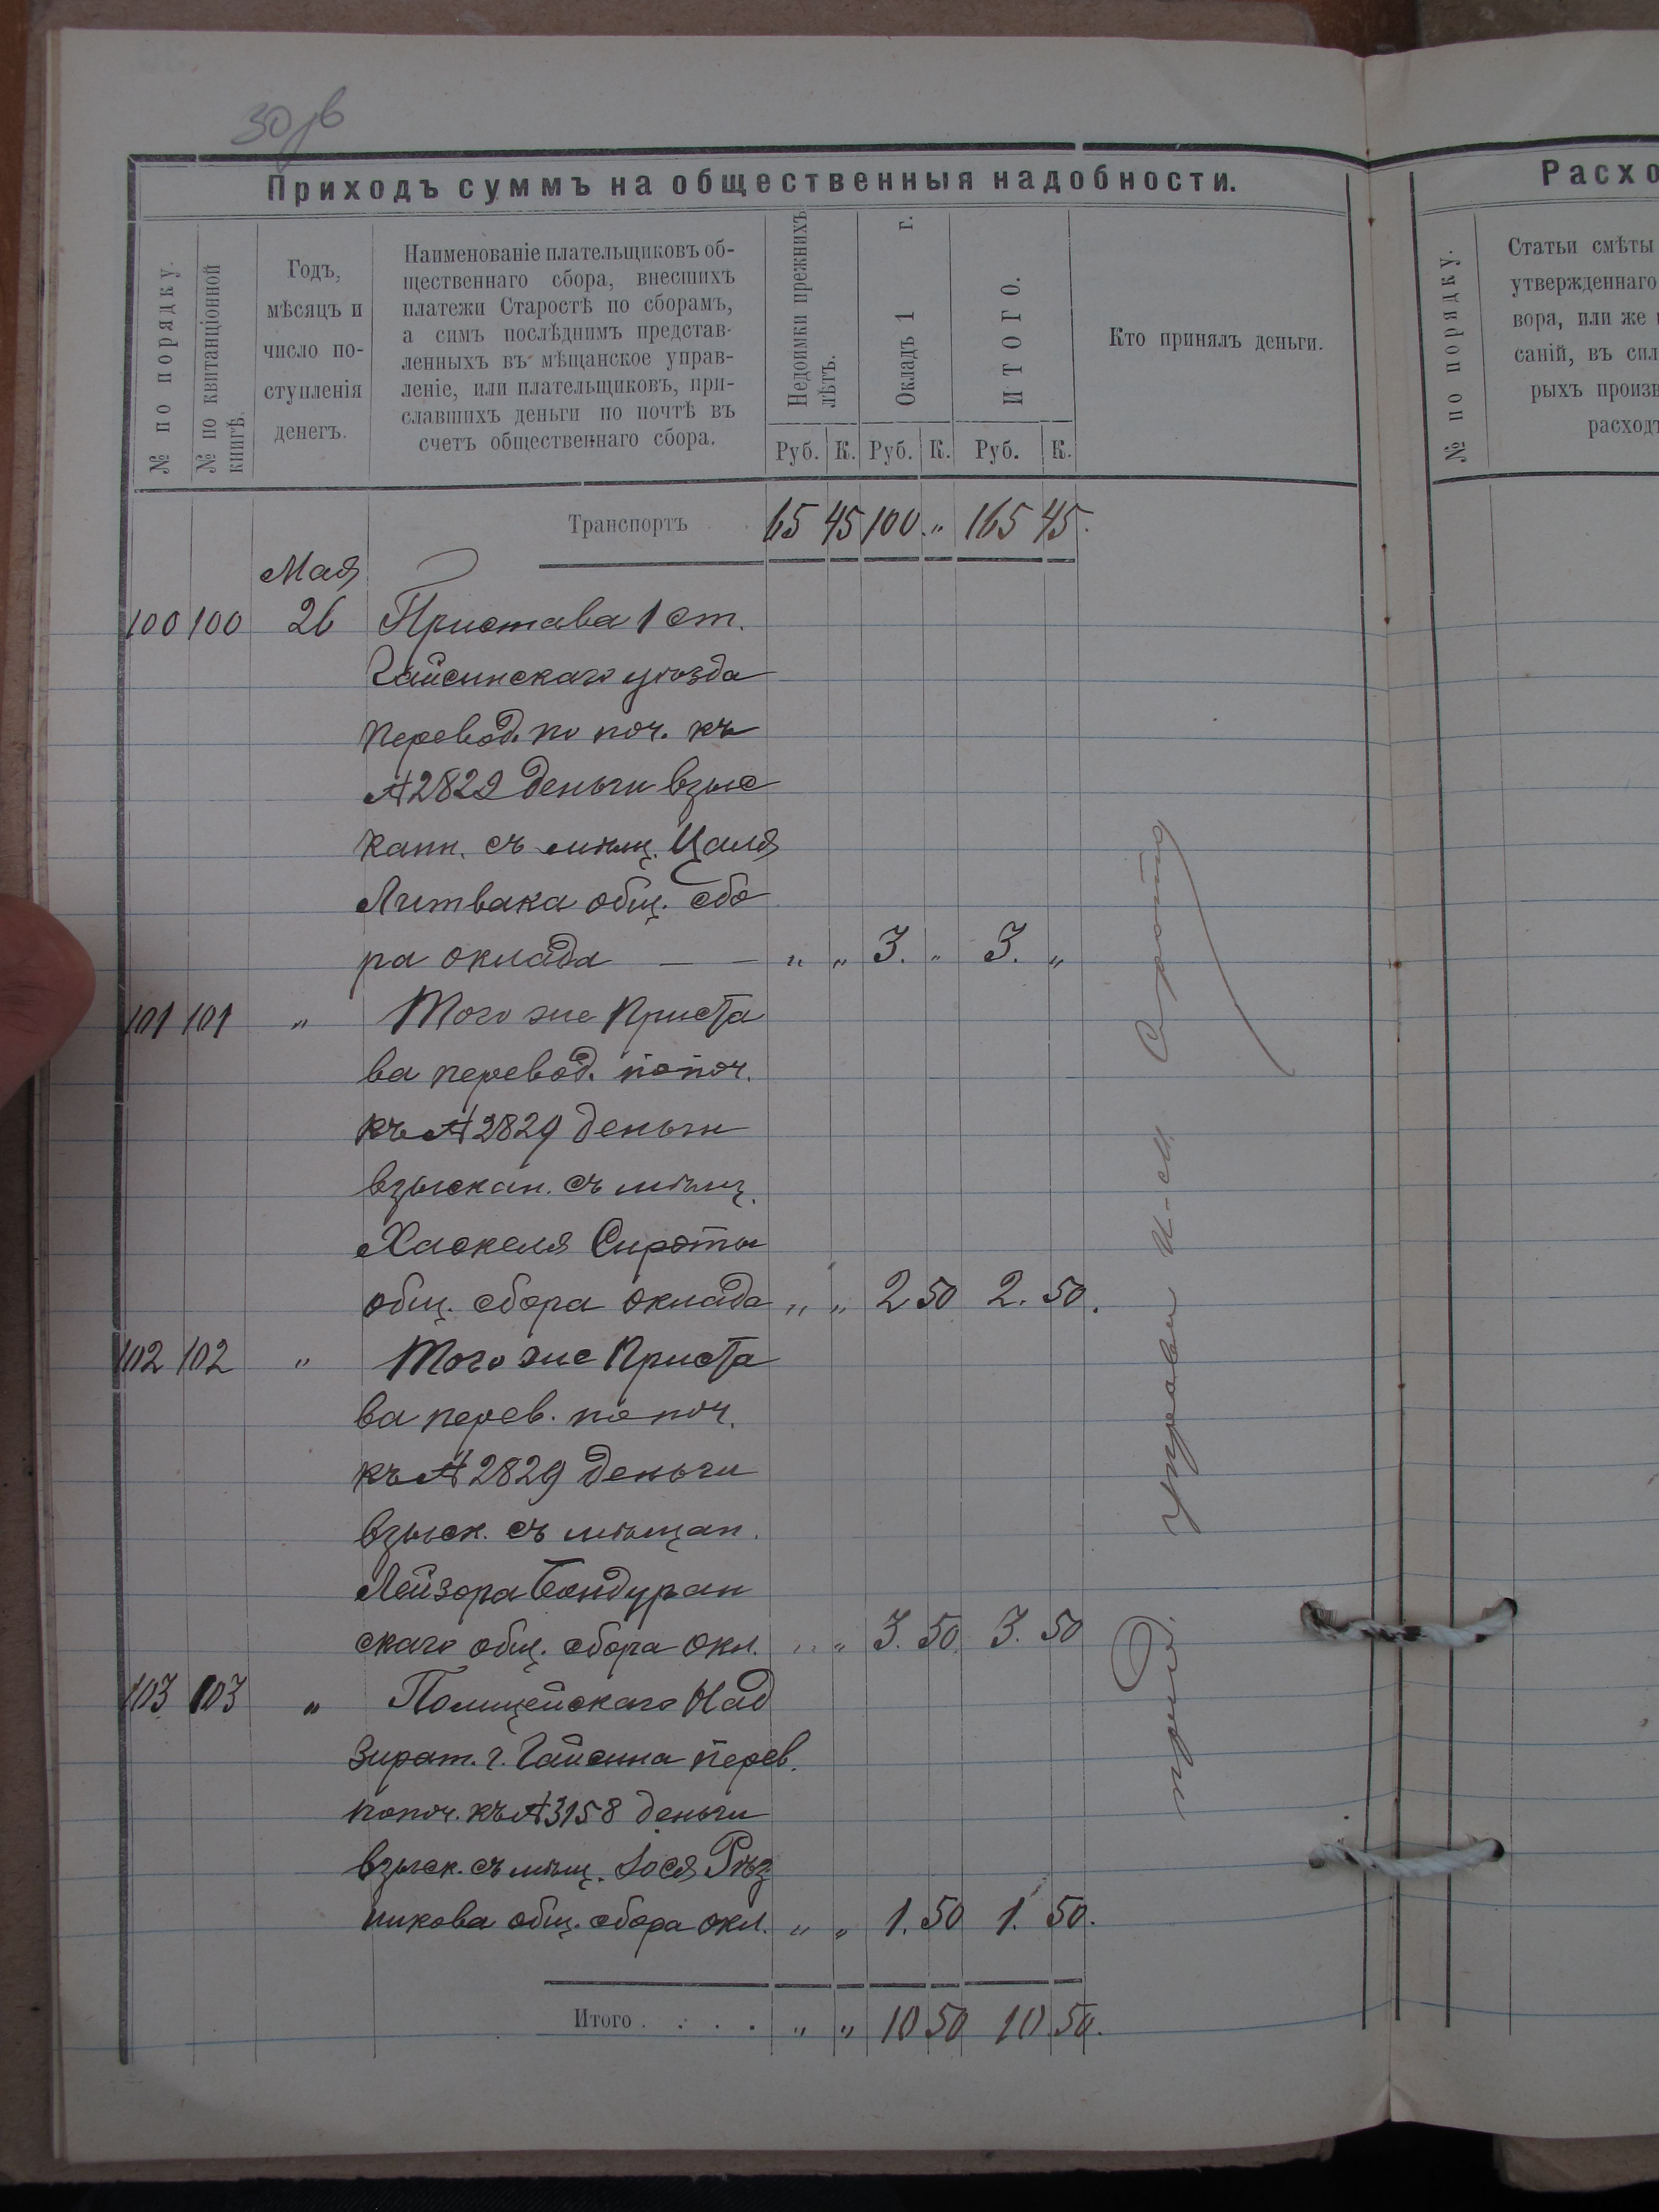 30 об
Приходъ суммъ на общественныя надобности.
№ по порядку.
№ по квитанціонной
книгѣ.
Годъ,
мѣсяцъ и
число по-
ступленія
денегъ.
Наименованіе плательщиковъ об-
щественнаго сбора, внесшихъ
платежи Старостѣ по сборамъ,
а симъ послѣднимъ представ-
ленныхъ въ мѣщанское управ-
леніе, или плательщиковъ, при-
славшихъ деньги по почтѣ въ
счетъ общественнаго сбора.
Недоимки прежнихъ
лѣтъ.
Окладъ 1 г.
ИТОГО.
Кто принялъ деньги.
Руб. К. Руб. К. Руб. К.
Транспортъ 65 45 100. „ 165 45.
Мая
100 100 26 Пристава 1 ст.
Гайсинскаго уѣзда
перевод. по поч. къ
№ 2829 деньги взыс
канн. съ мѣщ. Цаля
Литвака общ. сбо
ра оклада — — „ „ 3. „ 3. „
101 101 „ Того же Приста
ва перевод. по поч.
къ № 2829 деньги
взыскан. съ мѣщ.
Хаскеля Сироты
общ. сбора оклада „ „ 2 50 2. 50.
102 102 „ Того же Приста
ва перев. по поч.
къ № 2829 деньги
взыск. съ мѣщан.
Лейзора Бондуран
скаго общ. сбора окл. „ „ 3. 50. 3. 50
103 103 „ Полицейскаго Над
зират. г. Гайсина перев.
по поч. къ № 3158 деньги
взыск. съ мѣщ. Іося Рѣз
никова общ. сбора окл. „ „ 1. 50 1. 50.
Итого . . . . „ „ 10 50 10. 50.
Управы
Расхо
№ по порядку.
Статьи смѣты
утвержденнаго
вора, или же
саній, въ сил
рыхъ произв
расходъ